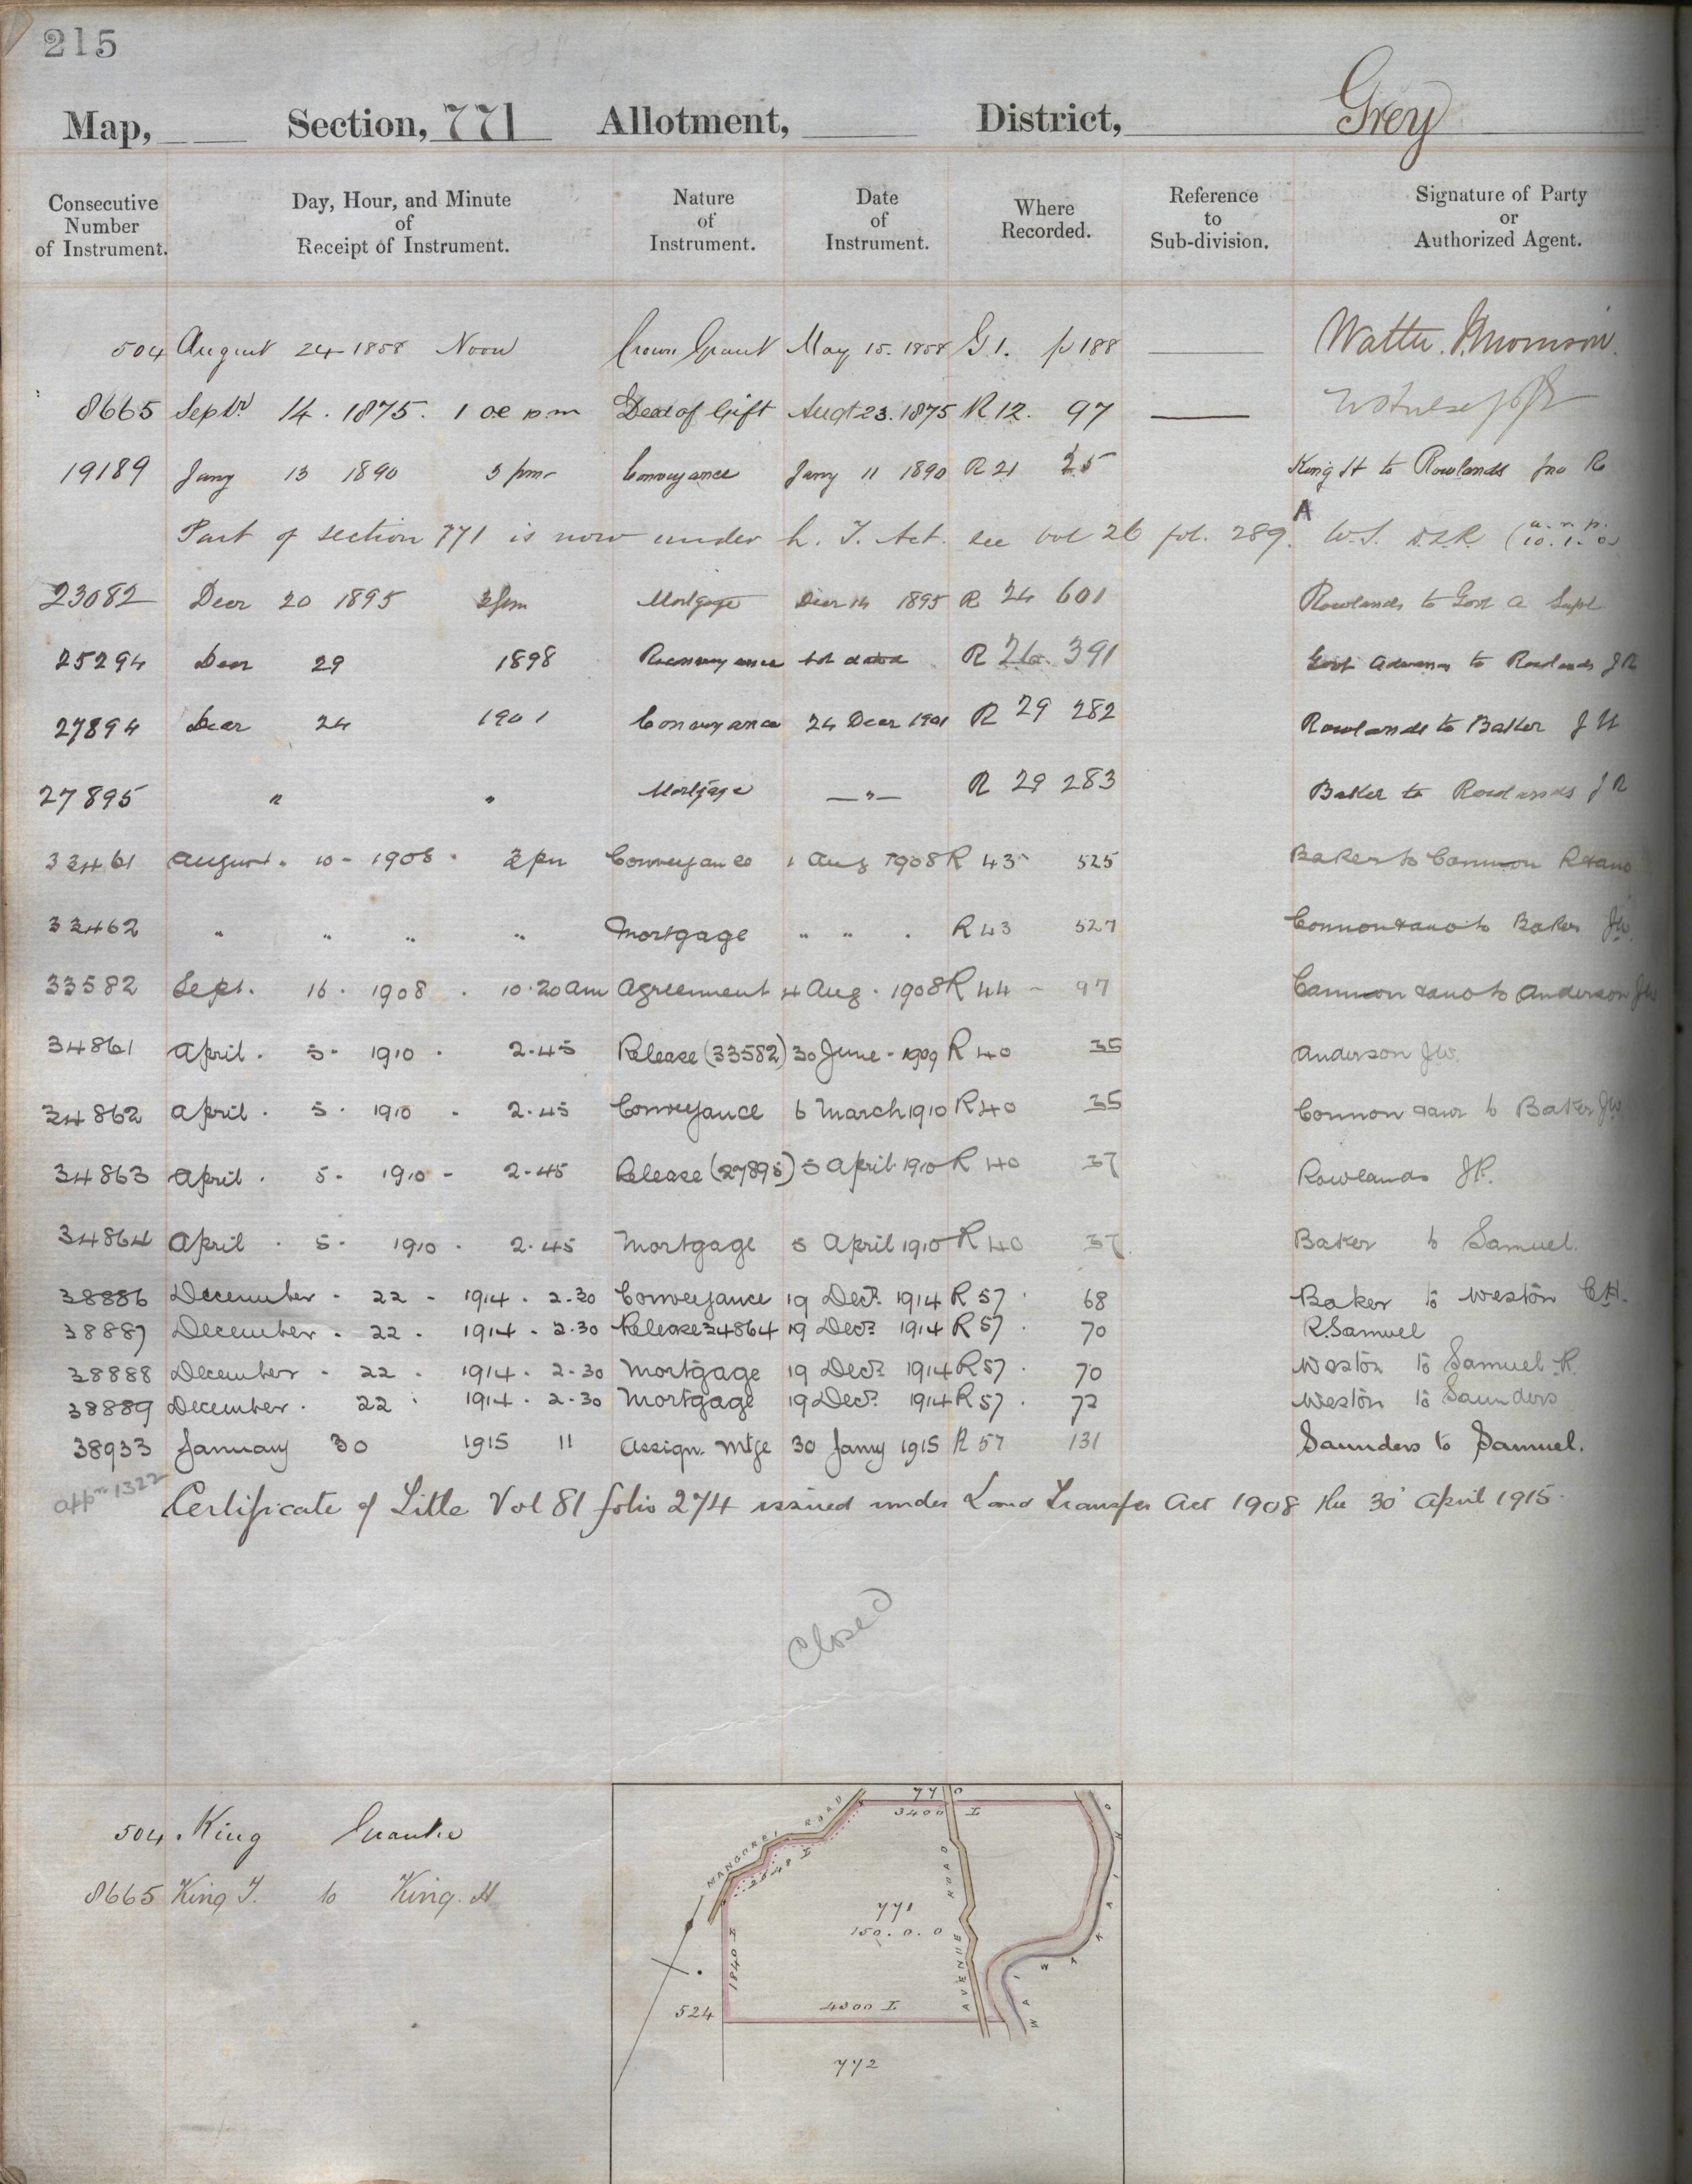 215
Map, Section, 771 Allotment, District, Grey
Consecutive Number of Instrument. Day, Hour, and Minute of Receipt of Instrument. Nature of Instrument. Date of Instrument. Where Recorded. Reference to Sub-division. Signature of Party or Authorized Agent.
504 August 24 1858 Noon Crown Grant May 15. 1858 G 1. p 188 Walter
8665 Septr 14. 1875. 1 p.m Deed of Gift Augt 23. 1875 R 12. 97
19189 Jany 13 1890 3 pm Conveyance Jany 11 1890 R 21 25 King H to Rowlands Jno R
Part of section 771 is now under L. T. Act. see vol 26 fol. 289. A W.S. D.L.R (a. r. p. 10. 1. 0)
23082 Decr 20 1895 3pm Mortgage Decr 14 1895 R 24 601 Rowlands to Govt A Supt
25294 Decr 29 1898 Reconveyance not dated R 26. 391 Govt Advances to Rowlands J R
27894 Decr 24 1901 Conveyance 24 Decr 1901 R 29 282 Rowlands to Baker J W
27895 " " Mortgage — " — R 29 283 Baker to Rowlands J R
33461 August. 10 - 1908. 2pm Conveyance 1 Aug 1908 R 43 525 Baker to Connon R & ano
33462 " " " " Mortgage " " . R 43 527 Connon & ano to Baker JW.
33582 Sept. 16. 1908. 10.20am Agreement 4 Aug. 1908 R 44 - 97 Cannon & ano to Anderson JW
34861 April. 5- 1910. 2.45 Release (33582) 30 June - 1909 R 40 35 Anderson JW.
34862 April. 5. 1910. 2.45 Conveyance 6 March 1910 R 40 35 Connon & anr to Baker JW
34863 April. 5- 1910 - 2.45 Release (27895) 5 April 1910 R 40 37 Rowlands JR.
34864 April. 5. 1910. 2.45 Mortgage 5 April 1910 R 40 37 Baker to Samuel.
38886 December - 22 - 1914. 2.30 Conveyance 19 Decr. 1914 R 57. 68 Baker to Weston C.H.
38887 December. 22. 1914. 2.30 Release 34864 19 Decr 1914 R 57. 70 R. Samuel
38888 December. 22. 1914. 2.30 Mortgage 19 Decr 1914 R 57. 70 Weston to Samuel R.
38889 December. 22. 1914. 2.30 Mortgage 19 Decr. 1914 R 57. 72 Weston to Saunders
38933 January 30 1915 11 Assign. Mtge 30 Jany 1915 R 57 131 Saunders to Samuel.
Appn 1322
Certificate of Title Vol 81 folio 274 issued under Land Transfer Act 1908 the 30' April 1915.
Closed
504. King Grantee
8665 King T. to King. H
770
3400 L
MANGOREI ROAD
2548 L
771
150. 0. 0
1840 L
AVENUE ROAD
WAIWAKAIHO
524
4300 L
772